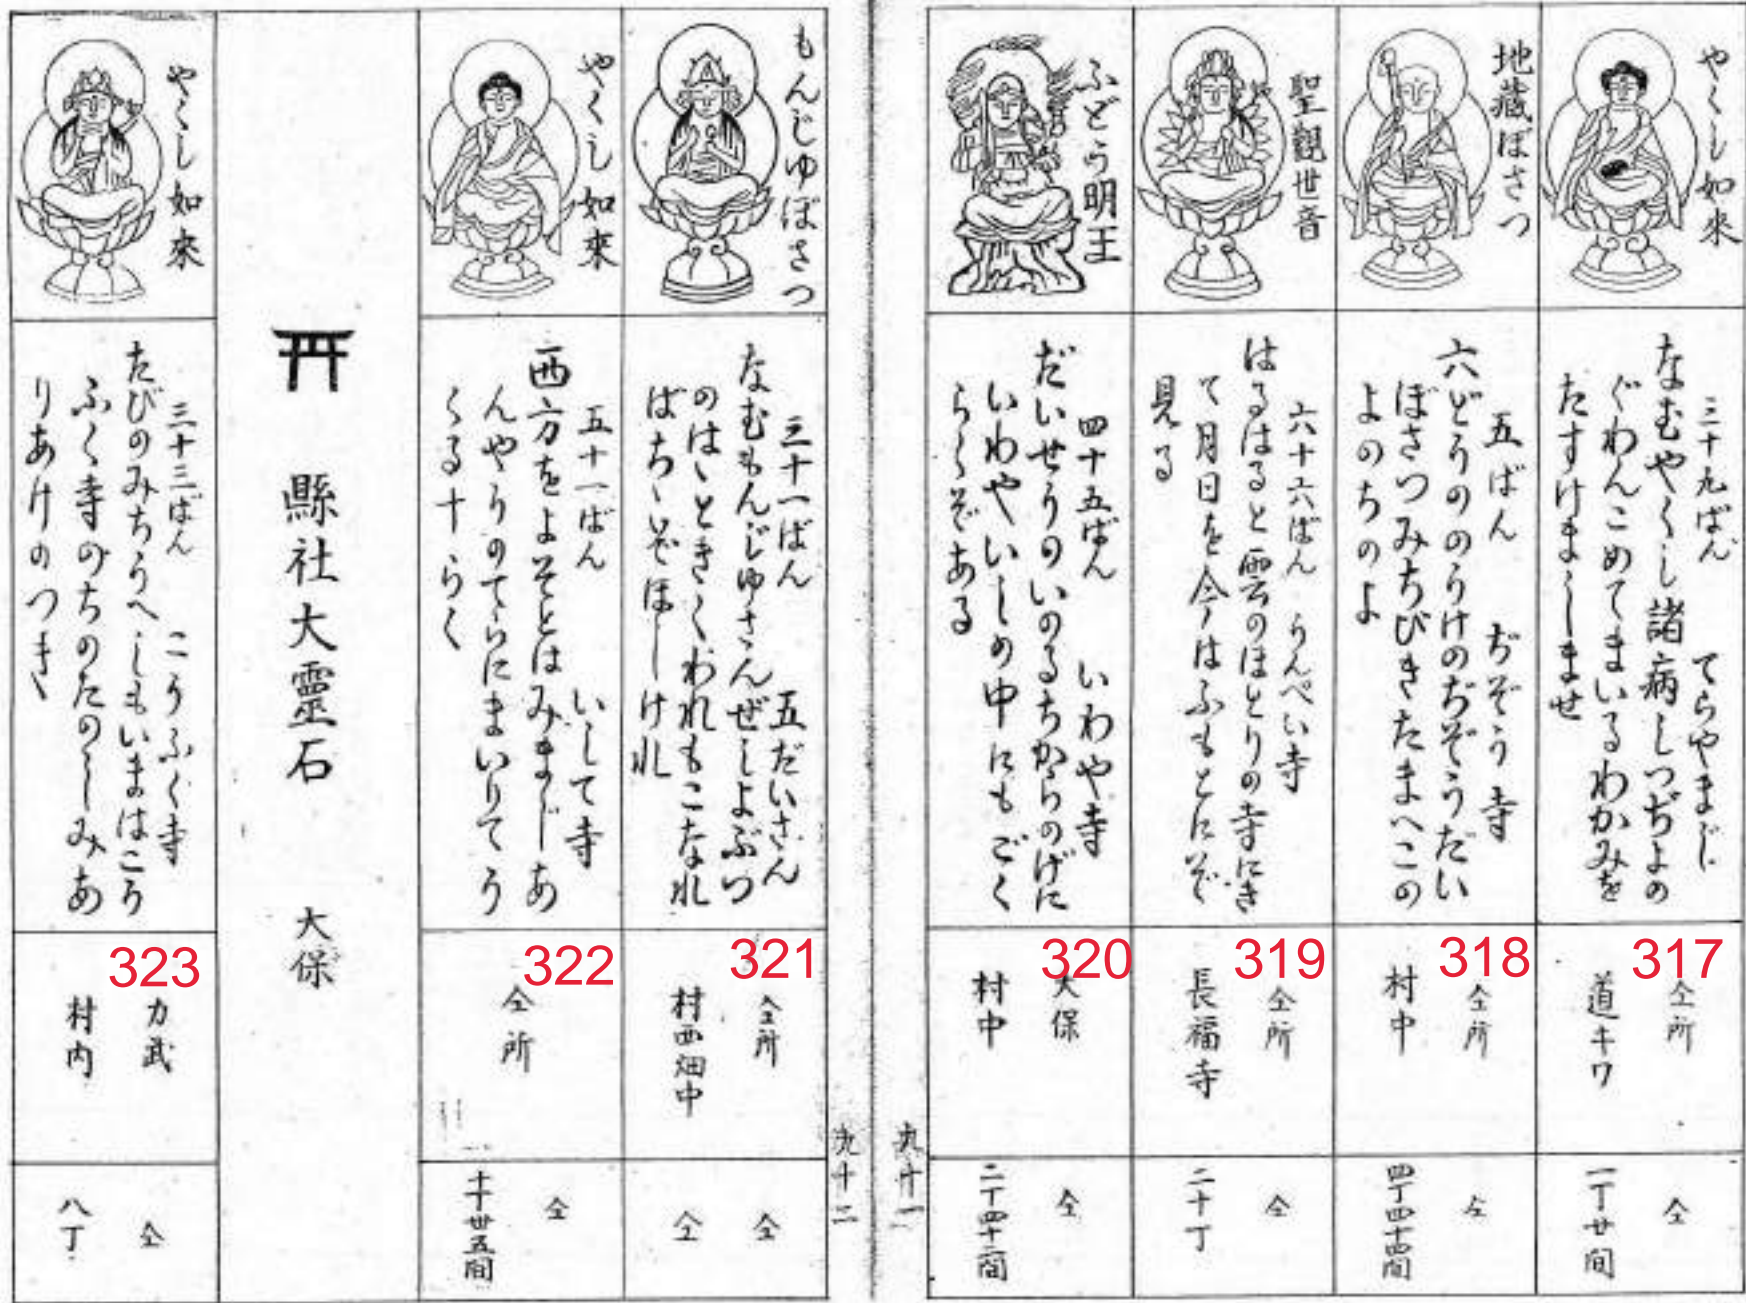 やくし如來
三十九ばん　てらやまじ
なむやくし諸病しつぢよの
ぐわんこめてまいるわかみを
たすけましませ
317
仝所
道キワ
仝
一丁廿間
地藏ぼさつ
五ばん　ぢぞう寺
六どうののうけのぢぞうだい
ぼさつみちびきたまへこの
よのちのよ
318
仝所
村中
仝
四丁四十四間
聖觀世音
六十六ばん　うんぺい寺
はるはると雲のほとりの寺にき
て月日を今はふもとにぞ
見る
319
仝所
長福寺
仝
二十丁
ふどう明王
四十五ばん　いわや寺
だいせりのいのるちからのげに
いわやいしの中にもごく
らくぞある
320
大保
村中
仝
二丁四十二間
九十一
九十二
もんじゅぼさつ
三十一ばん　五だいさん
なむもんじゆさんぜしよぶつ
のはゝときくわれもこなれ
ばちゝぞほしけれ
321
仝所
村西畑中
仝
仝
やくし如來
五十一ばん　いして寺
西方をよそとはみまじあ
んやうのてらにまいりてう
くる十らく
322
仝所
仝
十丁廿五間
縣社大靈石　大保
やくし如來
三十三ばん　こうふく寺
たびのみちうへしもいまはこう
ふく寺のちのたのしみあ
りあけのつき
323
力武
村内
仝
八丁